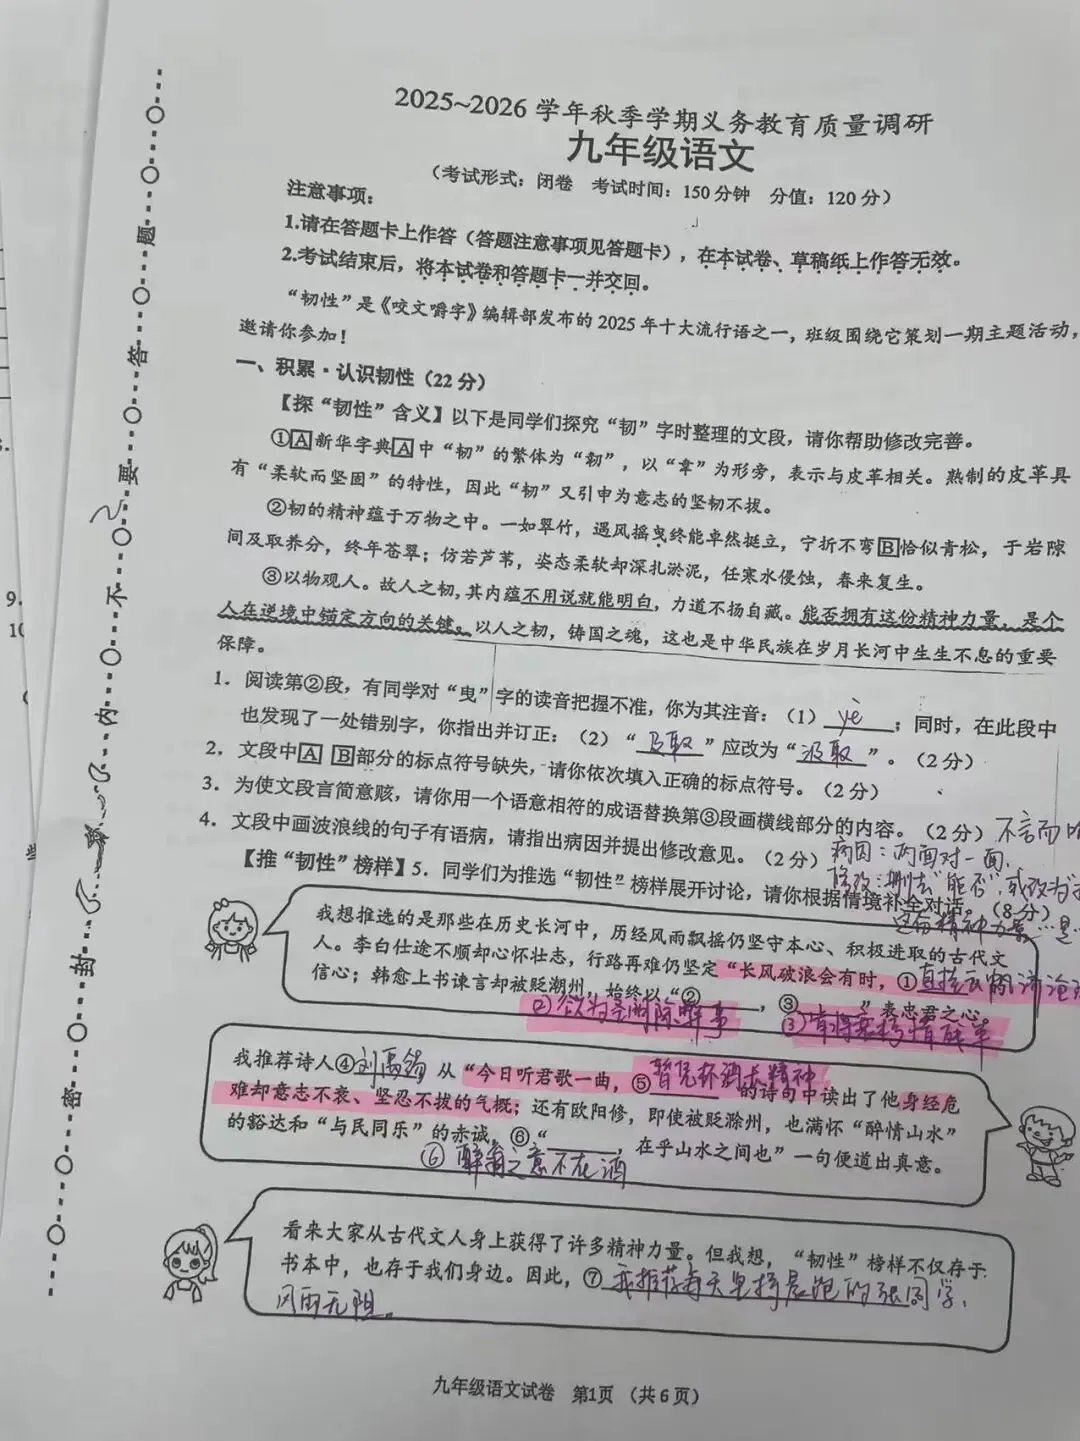 2025~2026 学年秋季学期义务教育质量调研
九年级语文
（考试形式：闭卷 考试时间：150 分钟 分值：120 分）
注意事项：
1.请在答题卡上作答（答题注意事项见答题卡），在本试卷、草稿纸上作答无效。
2.考试结束后，将本试卷和答题卡一并交回。
“韧性”是《咬文嚼字》编辑部发布的 2025 年十大流行语之一，班级围绕它策划一期主题活动，
邀请你参加！
一、积累·认识韧性（22 分）
【探“韧性”含义】以下是同学们探究“韧”字时整理的文段，请你帮助修改完善。
①A新华字典A中“韧”的繁体为“韌”，以“韋”为形旁，表示与皮革相关。熟制的皮革具
有“柔软而坚固”的特性，因此“韧”又引申为意志的坚韧不拔。
②韧的精神蕴于万物之中。一如翠竹，遇风摇曳终能卓然挺立，宁折不弯B恰似青松，于岩隙
间及取养分，终年苍翠；仿若芦苇，姿态柔软却深扎淤泥，任寒水侵蚀，春来复生。
③以物观人。故人之韧，其内蕴不用说就能明白，力道不扬自藏。能否拥有这份精神力量，是个
人在逆境中锚定方向的关键。以人之韧，铸国之魂，这也是中华民族在岁月长河中生生不息的重要
保障。
1．阅读第②段，有同学对“曳”字的读音把握不准，你为其注音：（1）yè；同时，在此段中
也发现了一处错别字，你指出并订正：（2）“及取”应改为“汲取”。（2 分）
2．文段中A B部分的标点符号缺失，请你依次填入正确的标点符号。（2 分）
3．为使文段言简意赅，请你用一个语意相符的成语替换第③段画横线部分的内容。（2 分）不言而
4．文段中画波浪线的句子有语病，请指出病因并提出修改意见。（2 分）
病因：两面对一面，
修改：删去“能否”，或改为
【推“韧性”榜样】5．同学们为推选“韧性”榜样展开讨论，请你根据情境补全对话。（8 分）
这份精神力量……是
我想推选的是那些在历史长河中，历经风雨飘摇仍坚守本心、积极进取的古代文
人。李白仕途不顺却心怀壮志，行路再难仍坚定“长风破浪会有时，①直挂云帆济沧
信心；韩愈上书谏言却被贬潮州，始终以“②，③”表忠君之心。
②欲为圣明除弊事 ③肯将衰朽惜残年
我推荐诗人④刘禹锡 从“今日听君歌一曲，⑤暂凭杯酒长精神”的诗句中读出了他身经危
难却意志不衰、坚忍不拔的气概；还有欧阳修，即使被贬滁州，也满怀“醉情山水”
的豁达和“与民同乐”的赤诚，⑥“，在乎山水之间也”一句便道出真意。
⑥ 醉翁之意不在酒
看来大家从古代文人身上获得了许多精神力量。但我想，“韧性”榜样不仅存于
书本中，也存于我们身边。因此，⑦我推荐每天坚持晨跑的张同学，
风雨无阻。
九年级语文试卷 第1页 （共 6 页）
密 封 线 内 不 要 答 题
9.
10